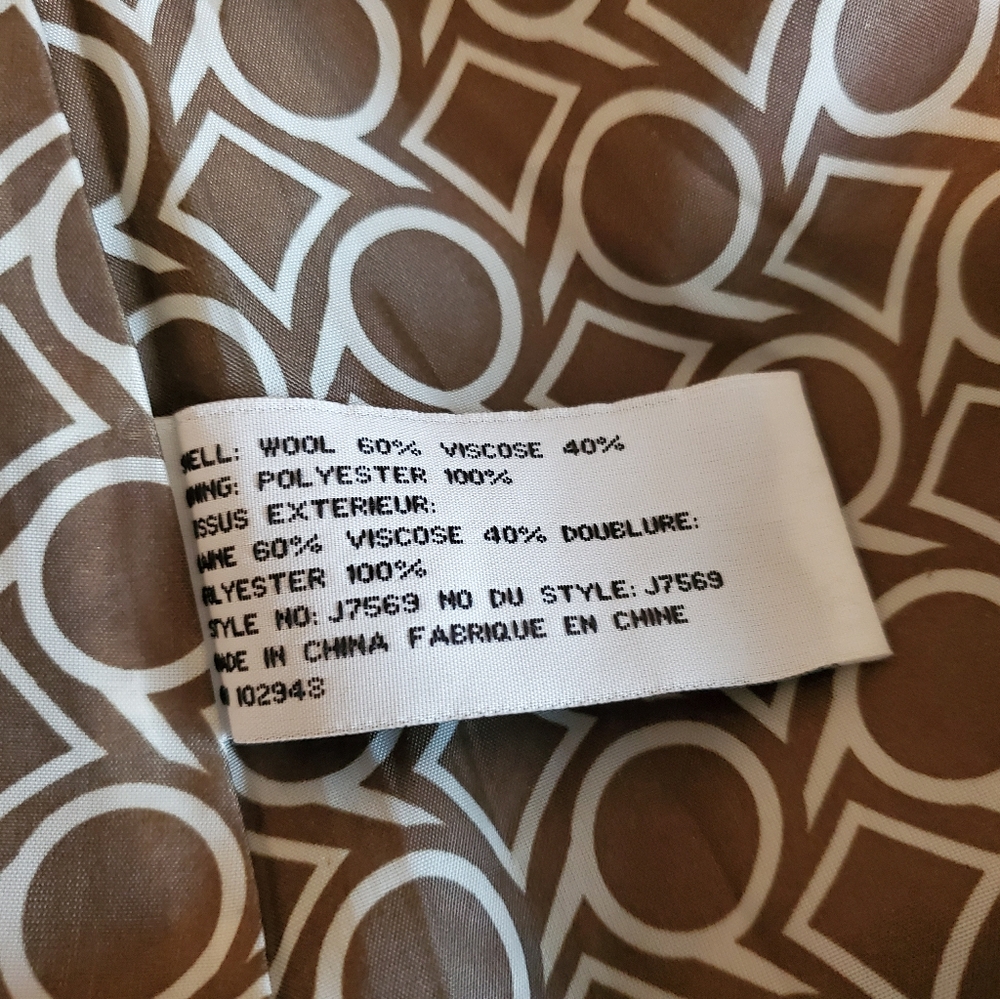 SHELL: WOOL 60% VISCOSE 40%
LINING: POLYESTER 100%
TISSUS EXTERIEUR:
LAINE 60% VISCOSE 40% DOUBLURE:
POLYESTER 100%
STYLE NO: J7569 NO DU STYLE: J7569
MADE IN CHINA FABRIQUE EN CHINE
102948